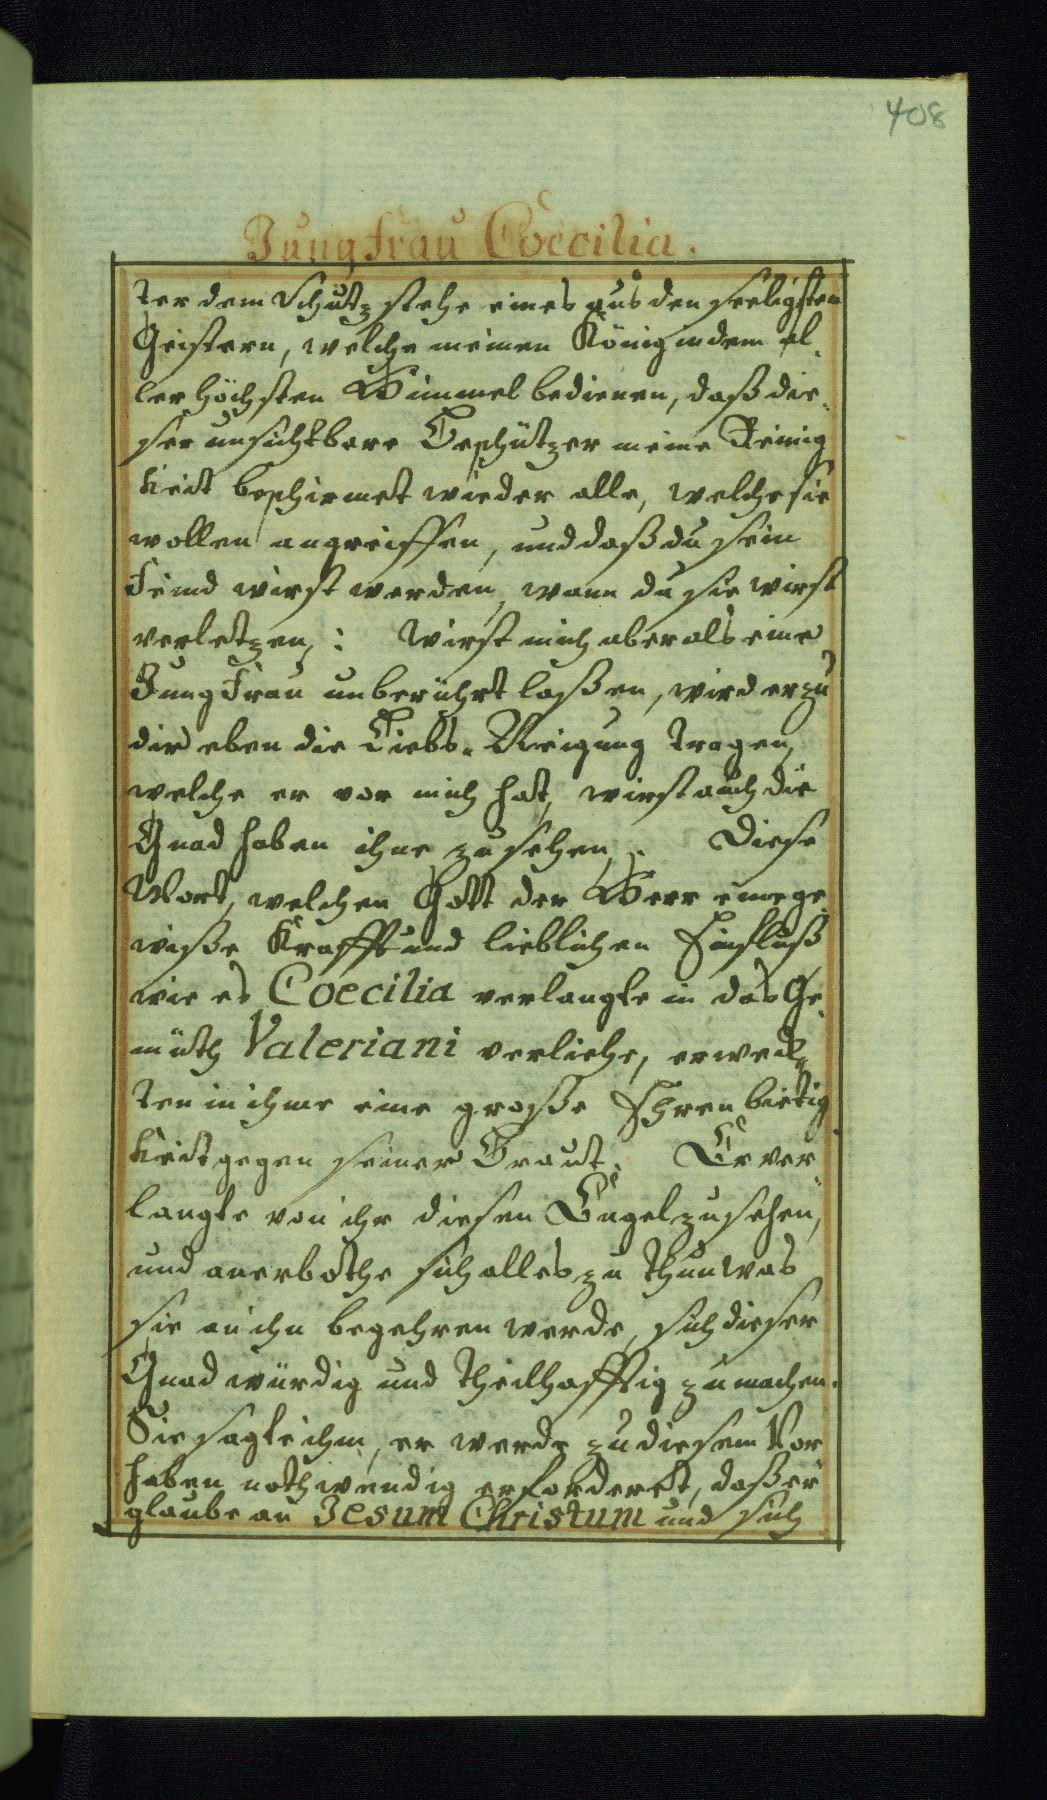 408
Jungfrau Coecilia.
ter dem Schutz stehe eines aus den seeligsten
Geistern, welche meinen König in dem al,
ler höchsten Himmel bedienen, daß die,
ser unsichtbare Beschützer meine Reinig
keit beschirmet wieder alle, welche sie
wollen angreiffen, und daß du sein
Feind wirst werden, wann du sie wirst
verletzen: wirst mich aber als eine
Jungfrau unberührt laßen, wird er zu
dir eben die Liebs-Neigung tragen,
welche er vor mich hat, wirst auch die
Gnad haben ihne zu sehen. Diese
Wort, welchen Gott der Herr eine ge
wiße Krafft und lieblichen Einfluß
wie es Coecilia verlangte in das Ge,
müth Valeriani verliehe, erweck,
ten in ihme eine große Ehrenbietig
keit gegen seiner Braut. Er ver,
langte von ihr diesen Engel zu sehen,
und anerbothe sich alles zu thun was
sie an ihn begehren werde, sich dieser
Gnad würdig und theilhafftig zu machen.
Sie sagte ihm, er werde zu diesem Vor
haben nothwendig erfordert, daß er
glaube an Jesum Christum und sich